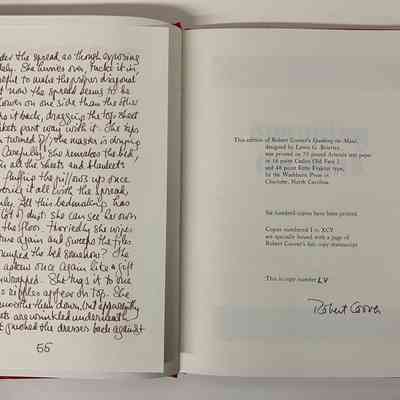 the spread, as though exposing
She hurries over, tucks it in
to make the proper diagonal
now the spread seems to be
lower on one side than the other
it back, dragging the top sheet
part way with it. She
turned the master is
Carefully, she remakes the bed,
in all the sheets and blankets
fluffing the pillows up once
it all with the spread,
All this bedmaking has
lot of dust: she can see her own
the floor. Horrified, she wipes
again and sweeps the tiles.
the bed somehow? The
askew once again like a gift
She tugs it to one
ripples appear on top. She
smooth them down, but apparently
are wrinkled underneath
pushed the dresser back against
55
This edition of Robert Coover's Spanking the Maid,
designed by Lewis G.
was printed on 70 pound Artemis text paper
in 16 point Caslon Old Face 2
and 48 point Fette Fraktur type,
by the Washburn Press in
Charlotte, North Carolina.
Six hundred copies have been printed.
Copies numbered I to XCV
are specially bound with a page of
Robert Coover's fair copy manuscript.
This is copy number LV
Robert Coover